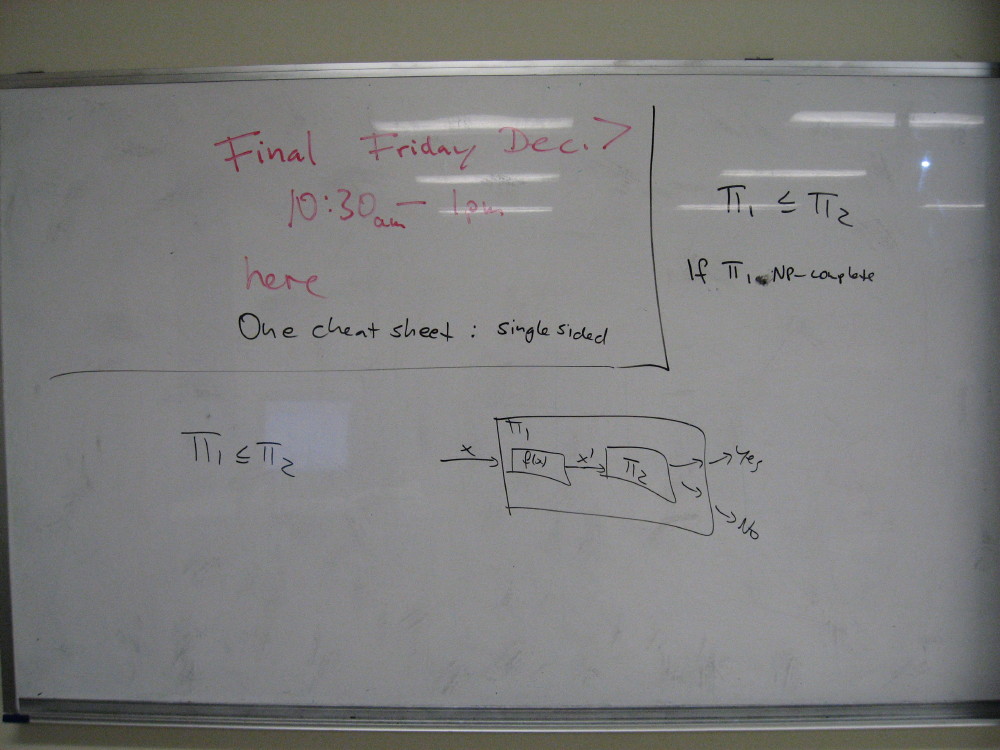 Final Friday Dec. 7
10:30am - 1pm
here
One cheat sheet : single sided
Π₁ ≤ Π₂
If Π₁ NP-complete
Π₁ ≤ Π₂
x
Π₁
f(x)
x'
Π₂
Yes
No